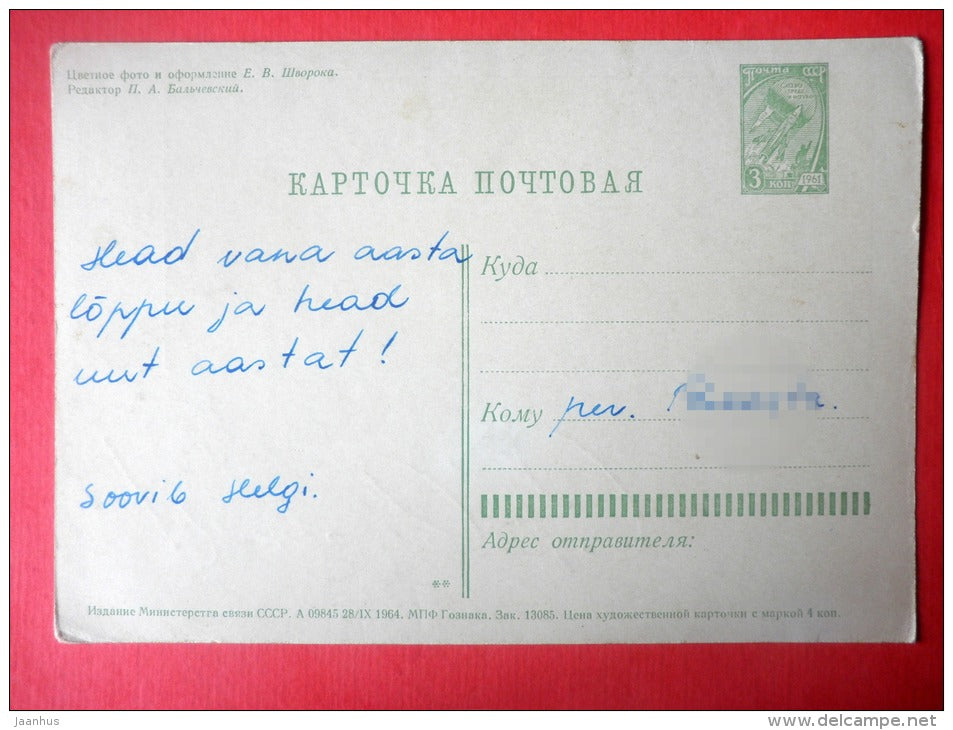 Цветное фото и оформление Е. В. Шворока.
Редактор П. А. Бальчевский.
Почта СССР
3 КОП
1961
КАРТОЧКА ПОЧТОВАЯ
Head vana aasta
lõppu ja head
uut aastat!
Soovib Helgi.
Куда
Кому per.
Адрес отправителя:
**
Издание Министерства связи СССР. А 09845 28/IX 1964. МПФ Гознака. Зак. 13085. Цена художественной карточки с маркой 4 коп.
jaanhus
www.delcampe.net